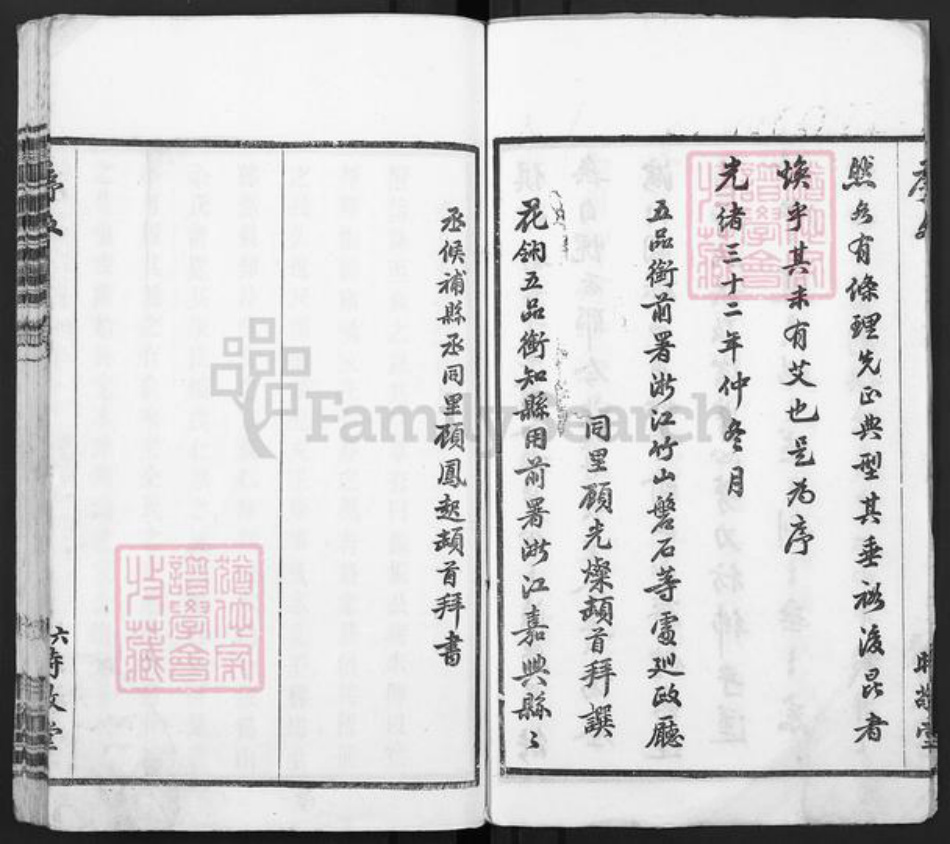 然各有條理先正典型其垂裕後昆者
煥乎其未有艾也是為序
光緒三十二年仲冬月
五品銜前署浙江竹山磐石等處廵政廳
同里顧光燦頓首拜譔
花翎五品銜知縣用前署浙江嘉興縣縣
丞候補縣丞同里顧鳳起頓首拜書
六時敬堂
猶他家
譜學會
收藏
FamilySearch